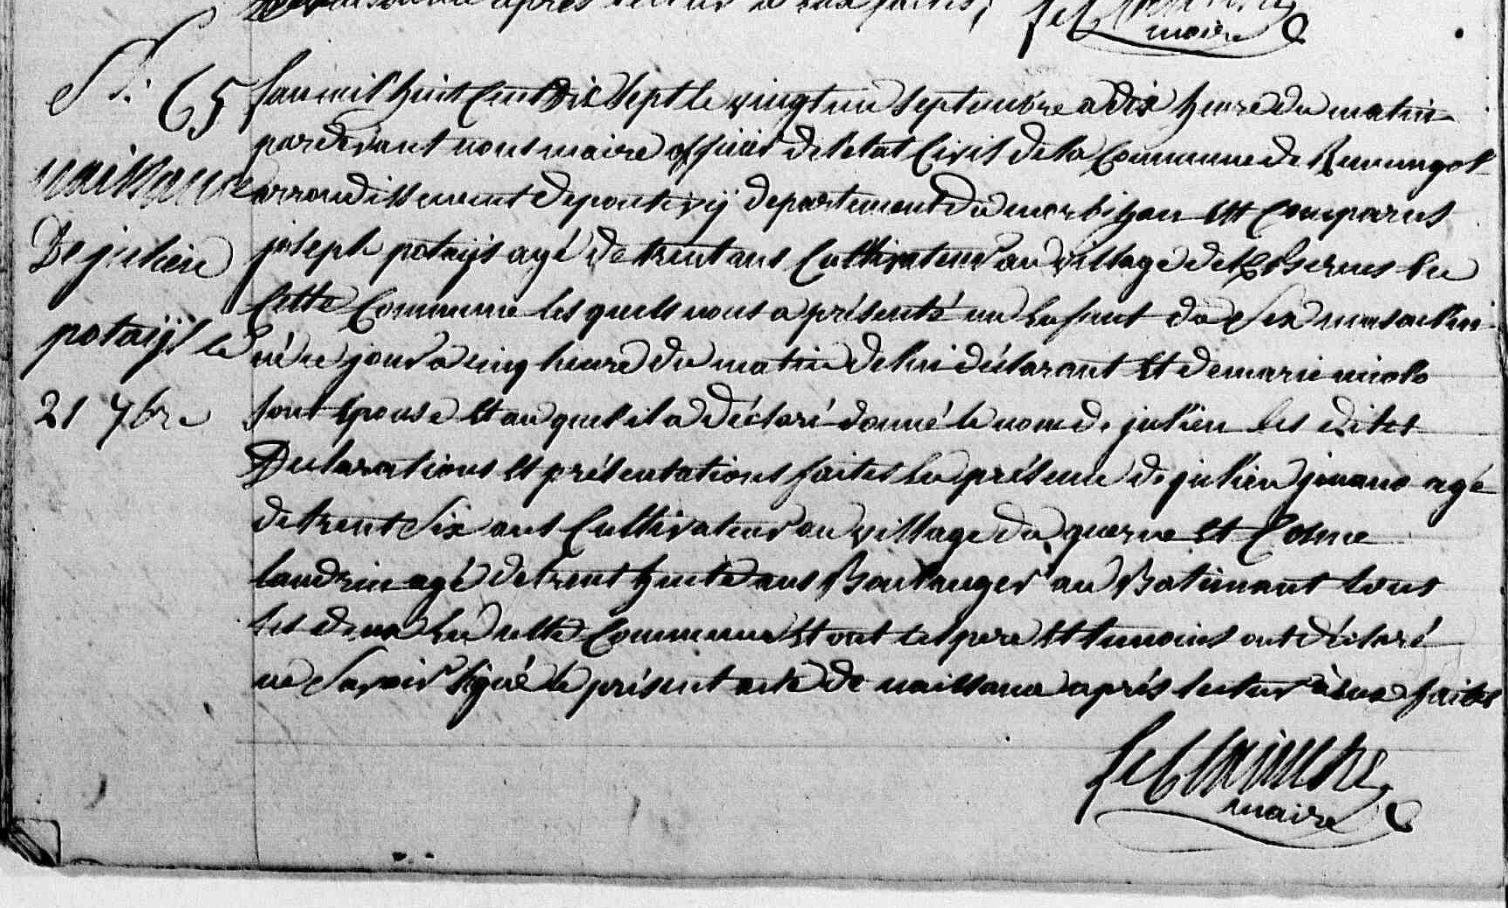 maire
N.º 65
naissance
De julien
potaÿs le
21 7bre
L'an mil huit Cent Dix Sept le vingt un Septembre a dix heure du matin
par devant nous maire officier de letat Civil de la Commune de Remungol
arrondissement de pontivÿ departement du morbihan est Comparus
joseph potaÿs agé de trent ans Cultivateur au village de en
Cette Commune les quels nous a présenté un Enfant du Sex masculin
né ce jour a cinq heure du matin de lui déclarant et de marie nicolo
sont Epouse et au quel il a déclaré donné le nom de julien les dites
Declarations et présentations faites En présence de julien jouano agé
de trent Six ans Cultivateur au village du querve et Cosme
landrin agé de trent huite ans Boulanger au Batimant tous
les deux En cette Commune et ont les pere et temoins ont déclaré
ne Savoir Signé le présent acte de naissance aprés lectur à eux faites
maire